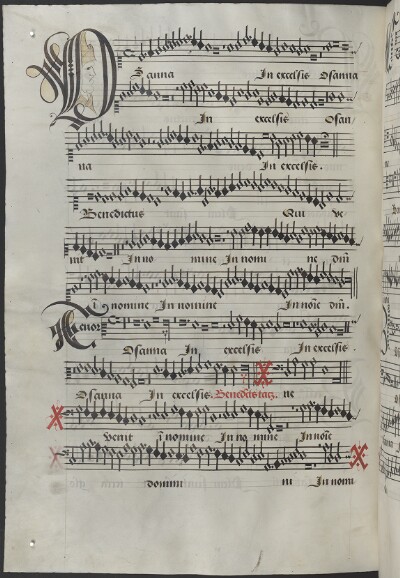 Osanna In excelsis Osanna
In excelsis Osan
na In excelsis.
Benedictus Qui ve
nit In no mine In nomi ne dm̄
ī nomine In nomine In noīe dm̄.
Tenor
Osanna In excelsis In excelsis.
Osanna In excelsis. Benedictꝰ tacꝫ. ne
venit ī nomine In no mine In noīe
domini ni In nomi